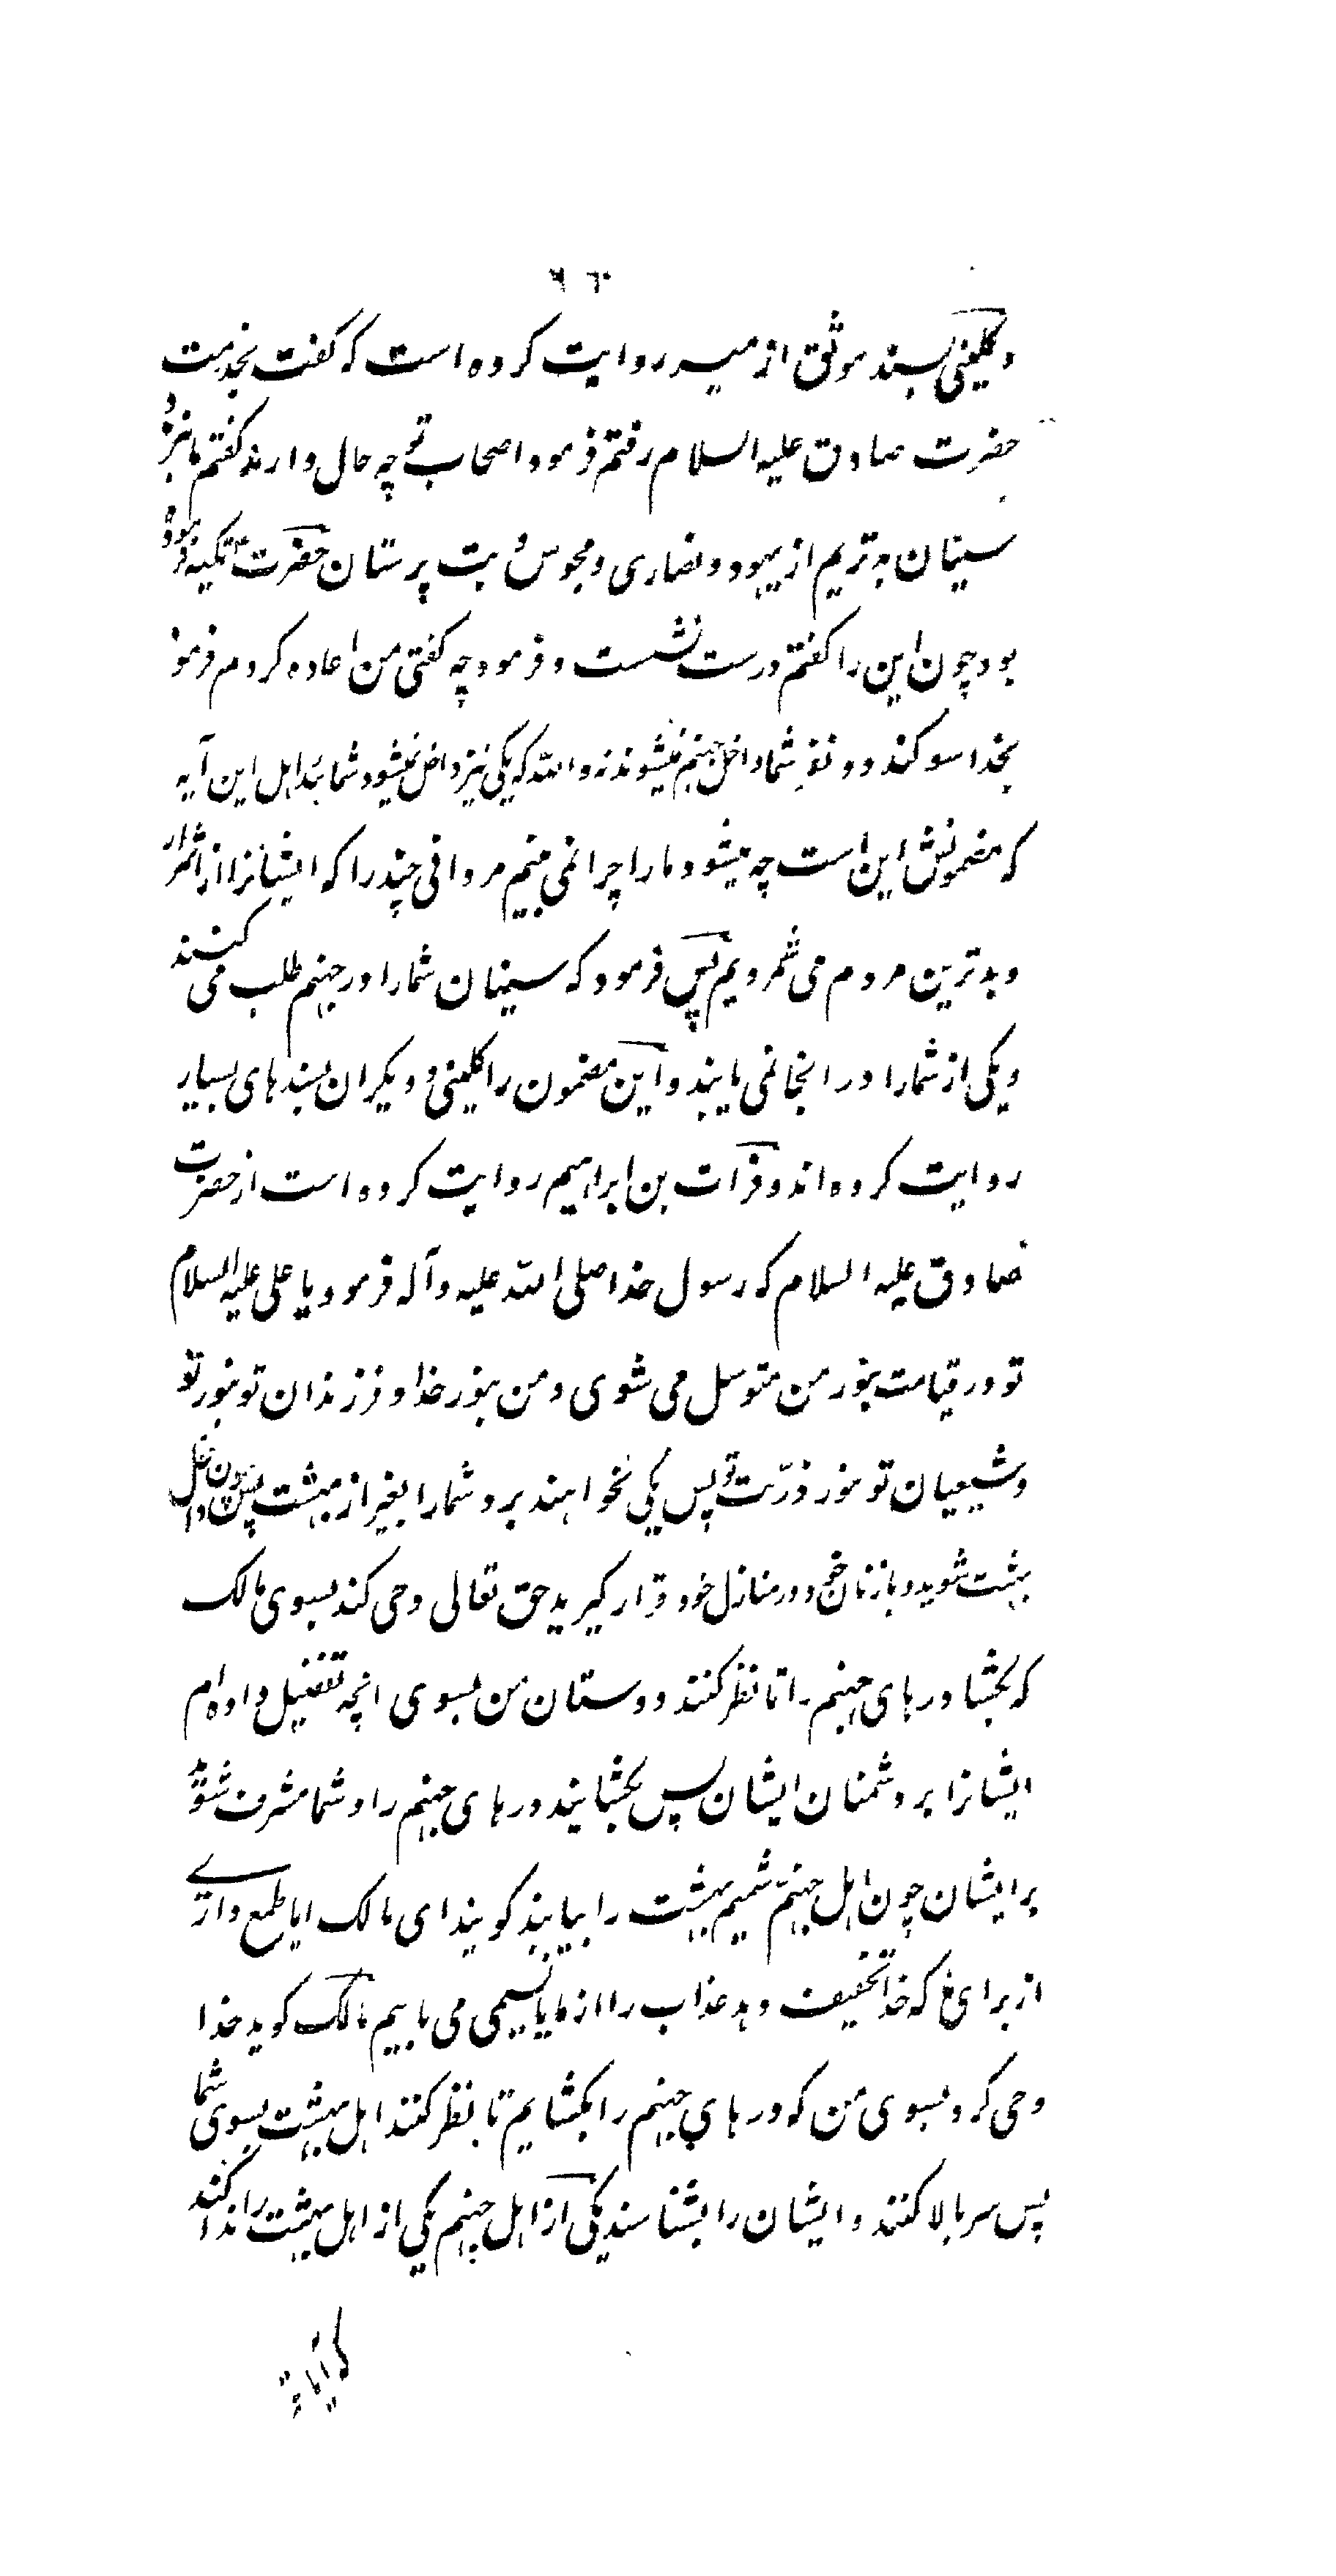 ٩٦٠
و کلینی بسند موثق از میسر روایت کرده است که گفت بخدمت
حضرت صادق علیه السلام رفتم فرمود اصحاب تو چه حال دارند گفتم ما نزد
سنیان بدتریم از یهود و نصاری و مجوس و بت پرستان حضرت تکیه فرموده
بود چون این را گفتم درست نشست و فرمود چه گفتی من اعاده کردم فرمود
بخدا سوگند دو نفر شما داخل جهنم نمیشوند نه والله که یکی نیز داخل نمیشود شمائید اهل این آیه
که مضمونش این است چه میشود ما را چرا نمی بینم مردانی چند را که ایشانرا از اشرار
و بدترین مردم می شمردیم پس فرمود که سنیان شما را در جهنم طلب می کنند
و یکی از شما را در انجا نمی یابند و این مضمون را کلینی و دیگران بسندهای بسیار
روایت کرده اند و فرات بن ابراهیم روایت کرده است از حضرت
صادق علیه السلام که رسول خدا صلی الله علیه وآله فرمود با علی علیه السلام
تو در قیامت بنور من متوسل می شوی و من بنور خدا و فرزندان تو بنور تو
و شیعیان تو بنور ذرّیت تو پس یکی نخواهند برد شما را بغیر از بهشت پس چون داخل
بهشت شوید و با زنان خود در منازل خود قرار گیرید حق تعالی وحی کند بسوی مالک
که بگشا درهای جهنم را تا نظر کنند دوستان من بسوی انچه تفضیل داده ام
ایشانرا بر دشمنان ایشان پس بگشایند درهای جهنم را و شما مشرف شوید
بر ایشان چون اهل جهنم شمیم بهشت را بیابند گویند ای مالک ایا طمع داری
از برای ما که خدا تخفیف دهد عذاب را از ما یا نسیمی می یابیم مالک گوید خدا
وحی کرد بسوی من که درهای جهنم را بگشایم تا نظر کنند اهل بهشت بسوی شما
پس سر بالا کنند و ایشان را بشناسند یکی از اهل جهنم یکی از اهل بهشت را ندا کند
که ایا تو